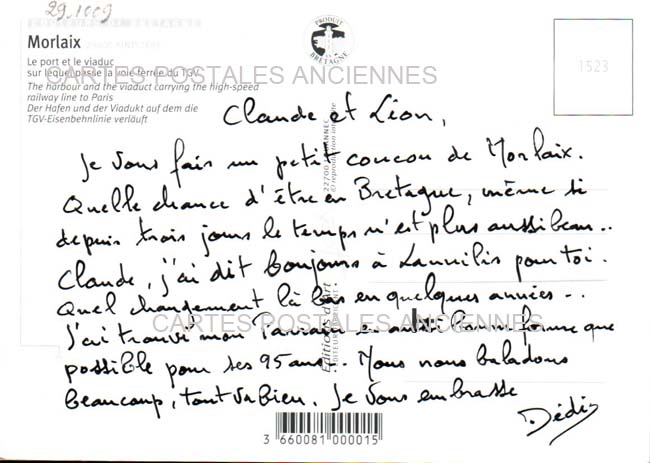 29.1009
COULEURS DE BRETAGNE
Morlaix
Le port et le viaduc
sur lequel passe la voie ferrée du TGV
The harbour and the viaduct carrying the high-speed
railway line to Paris
Der Hafen und der Viadukt auf dem die
TGV-Eisenbehnlinie verläuft
PRODUIT
EN
BRETAGNE
1523
CARTES POSTALES ANCIENNES
Claude et Léon,
Je vous fais un petit coucou de Morlaix.
Quelle chance d'être en Bretagne, même si
depuis trois jours le temps n'est plus aussi beau..
Claude, j'ai dit bonjour à Lannilis pour toi.
Quel changement là bas en quelques années...
J'ai trouvé mon en aussi bonne forme que
possible pour ses 95 ans... Nous nous baladons
beaucoup, tout va bien. Je vous embrasse
Dédé
CARTES POSTALES ANCIENNES
Editions d'Art
22700
© reproduction interdite
3 660081 000015